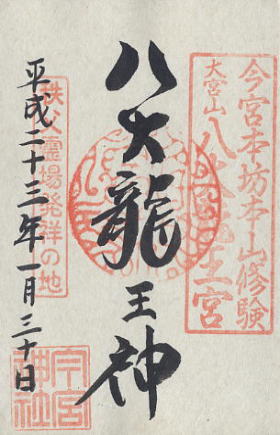 今宮本坊本山修験
大宮山
八大龍王宮
八大龍王神
秩父霊場発祥の地
平成二十三年一月三十日
今宮神社